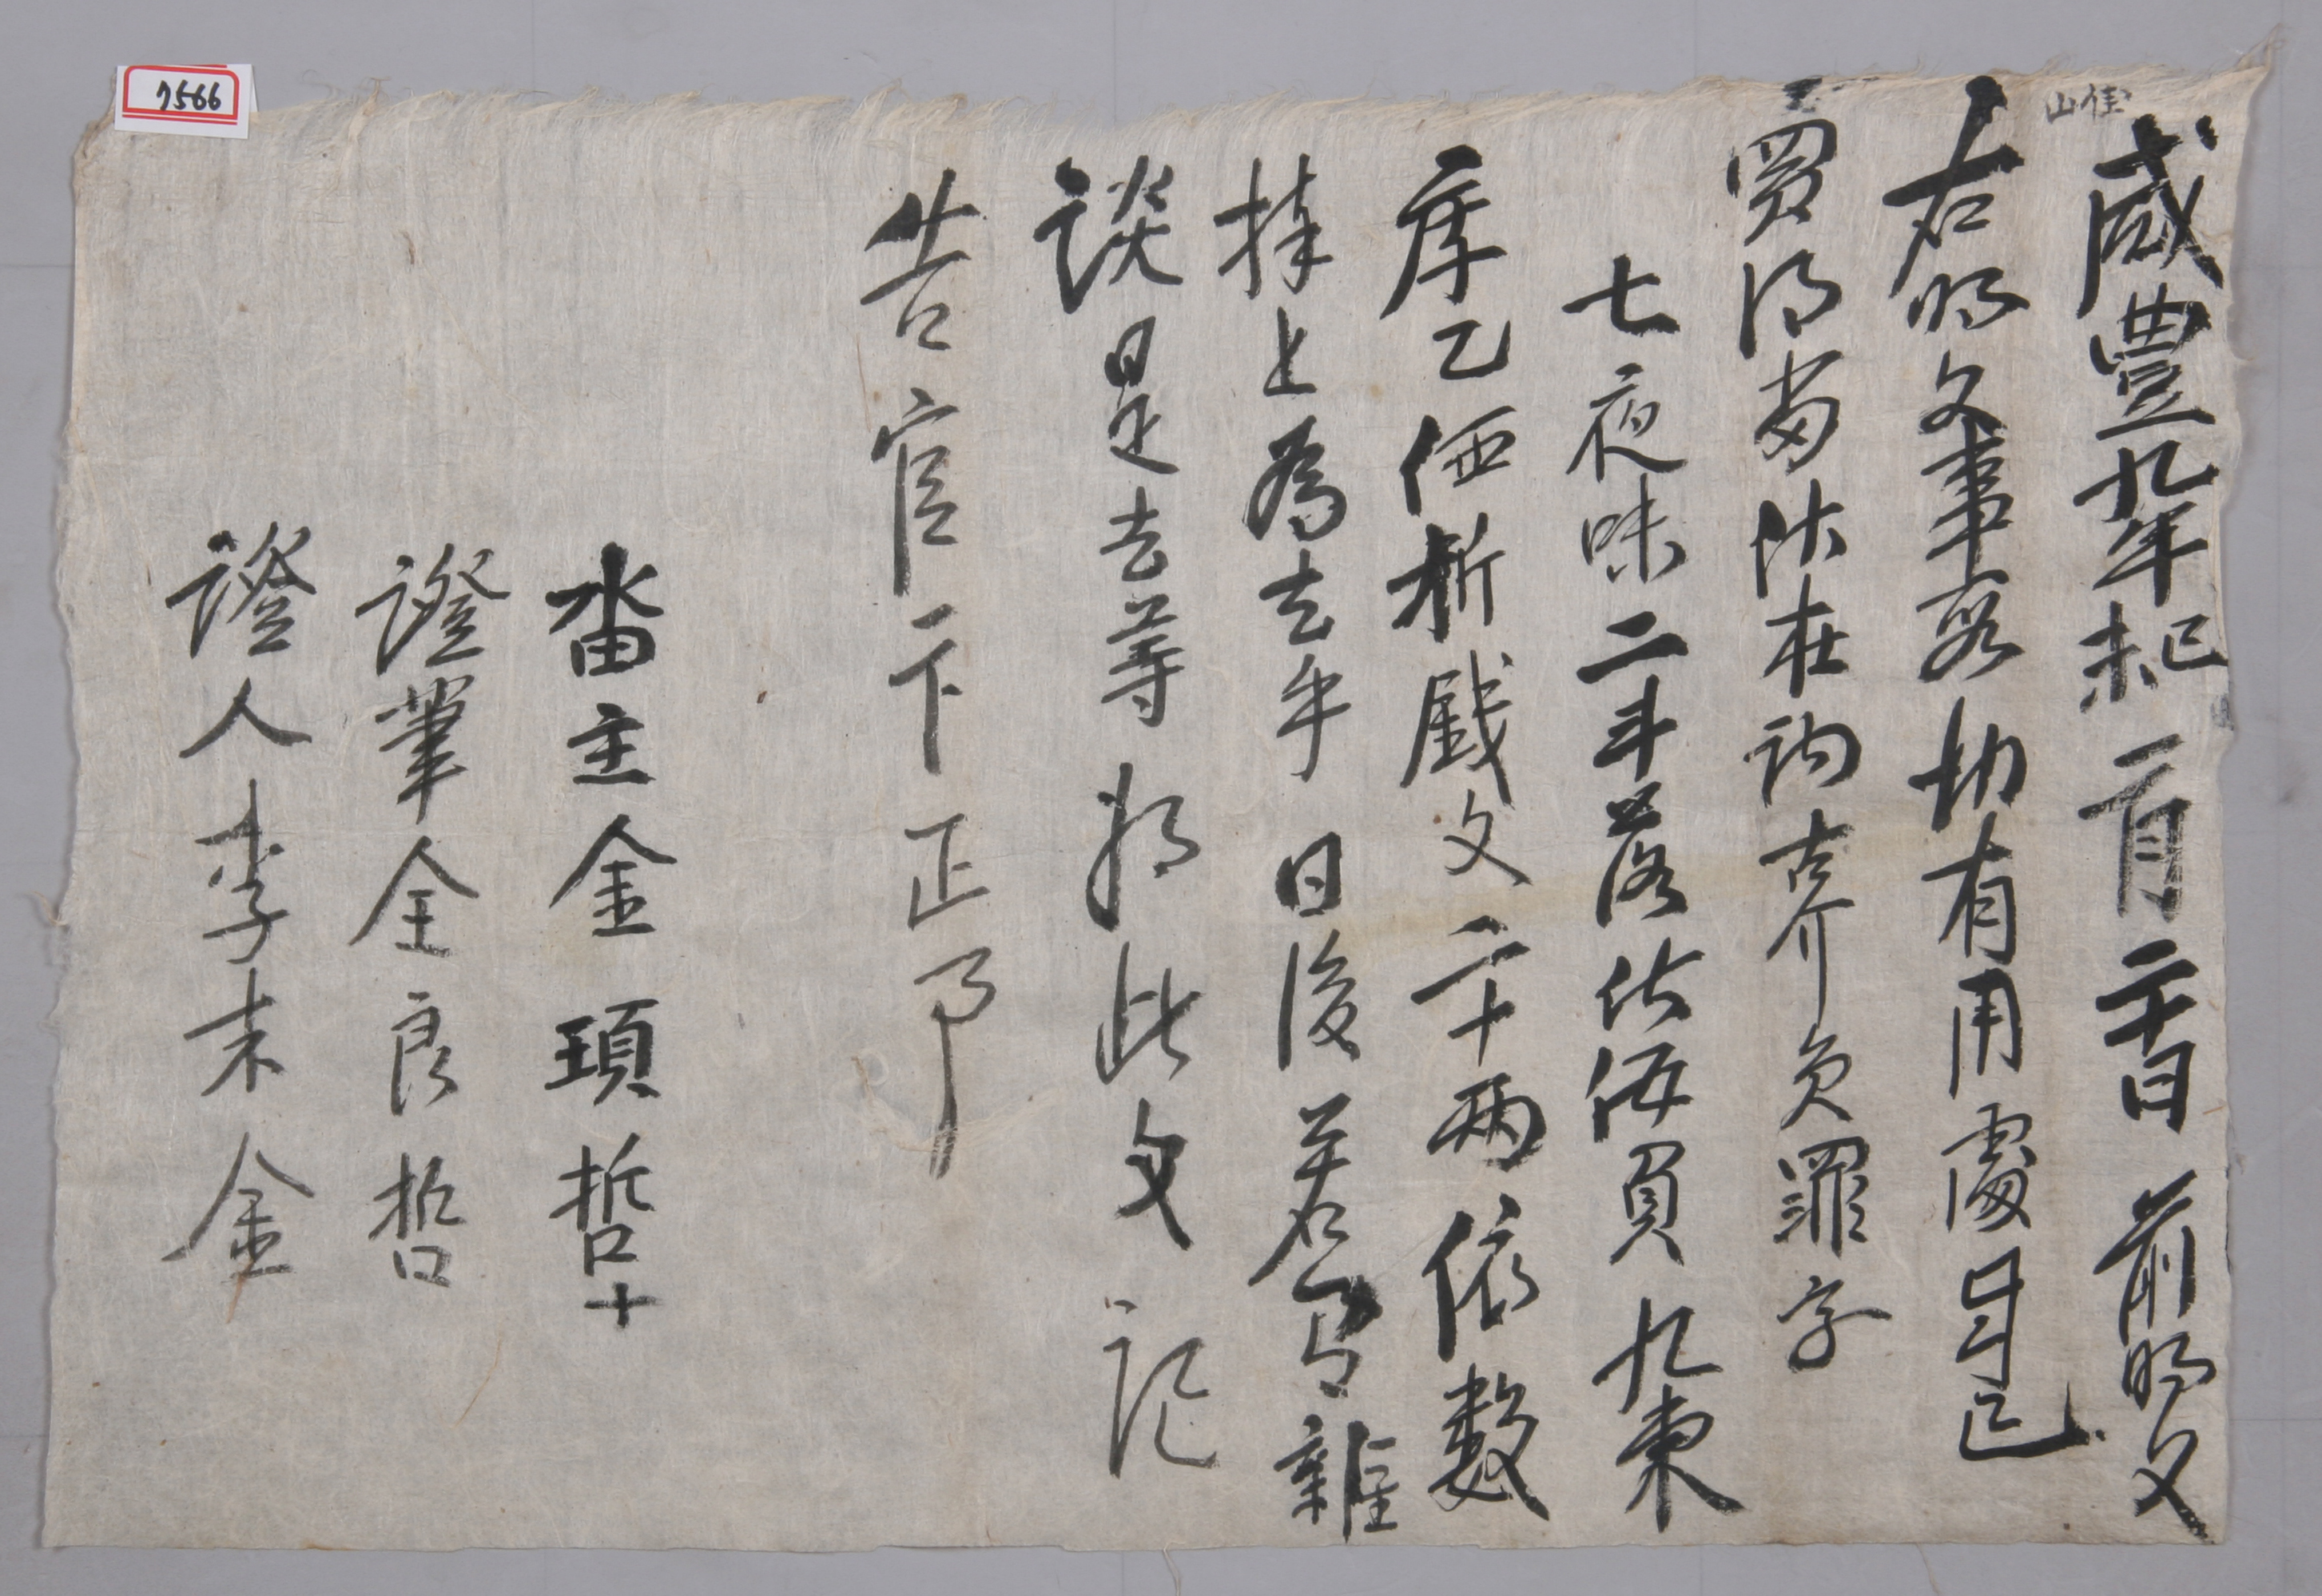 7566
山隹
咸豐九年己未二月二十日前明文
右明文事段切有用處自己
買得畓伏在訥古介員罪字
七夜味二斗落伏在員九束
庫乙価折戔文二十兩依數
捧上爲去乎日後若有雜
談是去等將此文記
告官卞正事
畓主金頊哲十
證筆全良哲
證人李末金